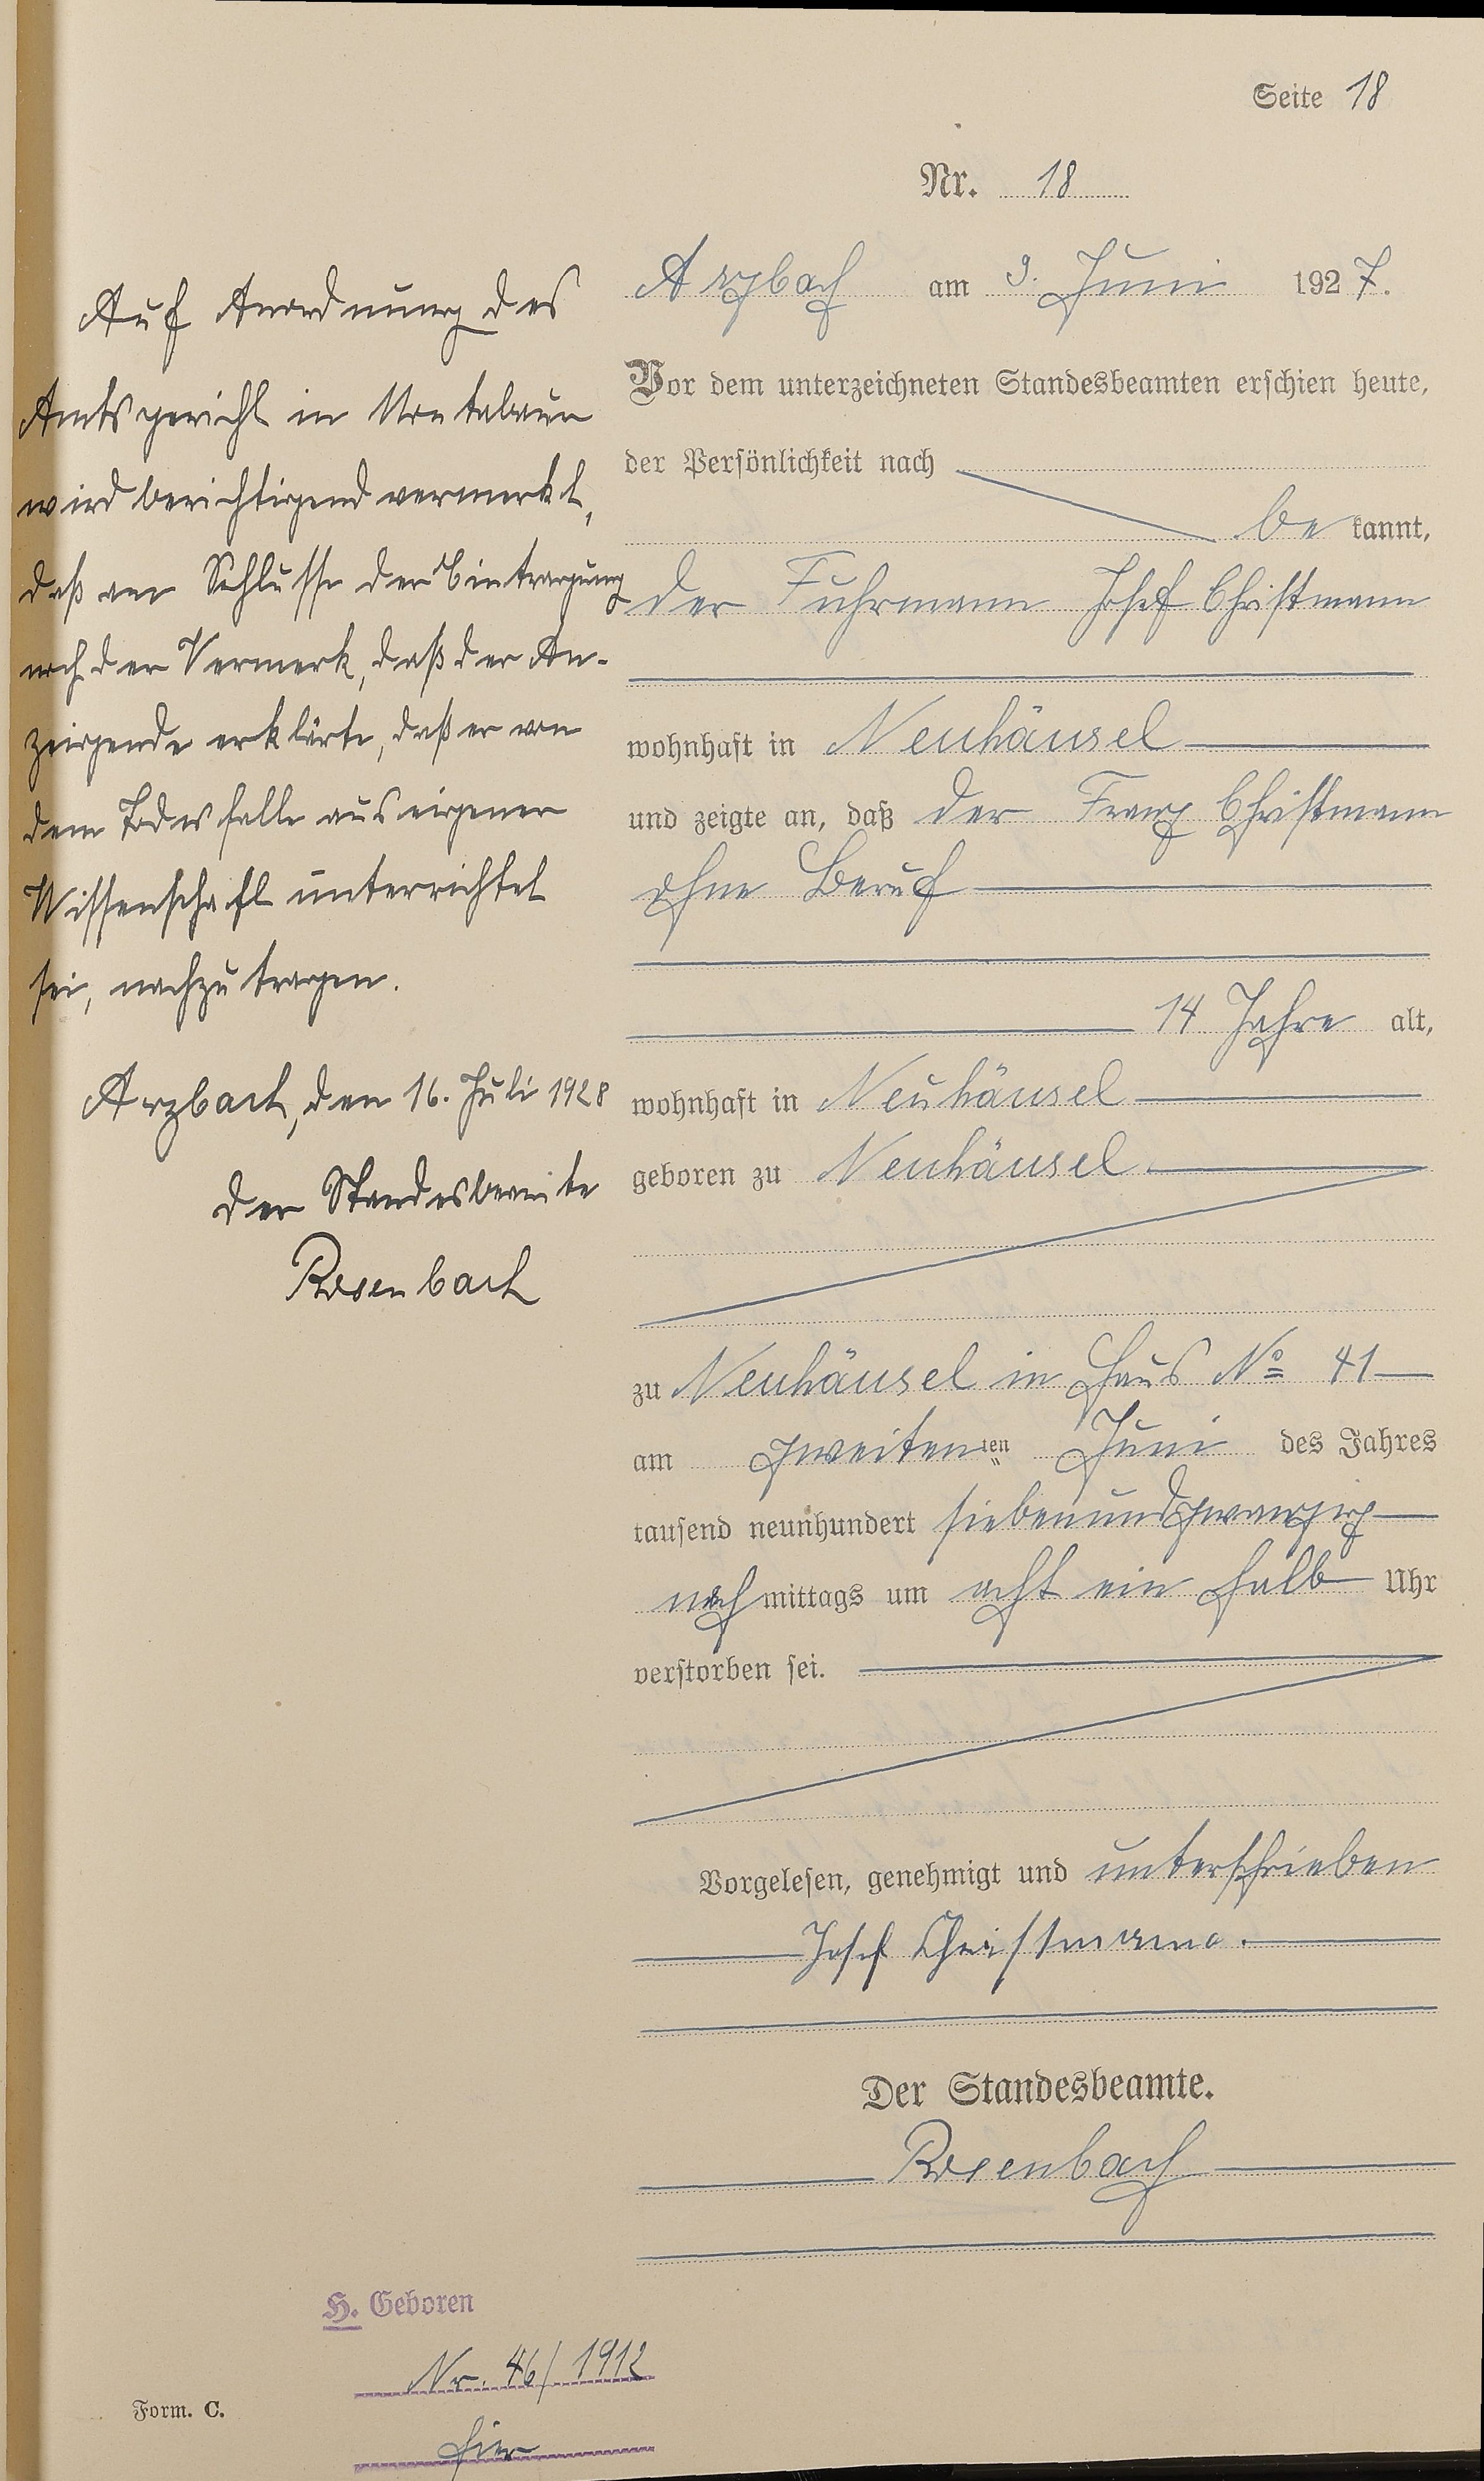 Seite 18
Nr. 18
Arzbach am 3. Juni 1927.
Vor dem unterzeichneten Standesbeamten erschien heute,
der Persönlichkeit nach
be kannt,
der Fuhrmann Josef Christmann
wohnhaft in Neuhäusel
und zeigte an, daß der Franz Christmann
ohne Beruf
14 Jahre alt,
wohnhaft in Neuhäusel
geboren zu Neuhäusel
zu Neuhäusel in Haus No 41
am zweiten ten Juni des Jahres
tausend neunhundert siebenundzwanzig
nach mittags um acht ein halb Uhr
verstorben sei.
Vorgelesen, genehmigt und unterschrieben
Josef Christmann.
Der Standesbeamte.
Rosenbach
Auf Anordnung des
Amtsgericht in Montabaur
wird berichtigend vermerkt,
daß am Schlusse der Eintragung
noch der Vermerk, daß der An-
zeigende erklärte, daß er von
dem Todesfalle aus eigener
Wissenschaft unterrichtet
sei, nachzutragen.
Arzbach, den 16. Juli 1928
Der Standesbeamte
Rosenbach
H. Geboren
Nr. 46/1912
hier
Form. C.